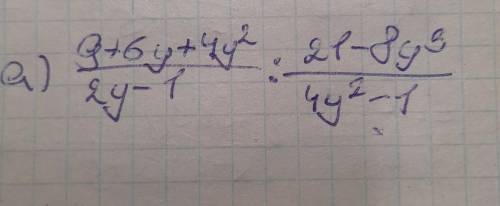 а) (9+6y+4y²)/(2y-1) : (21-8y³)/(4y²-1)